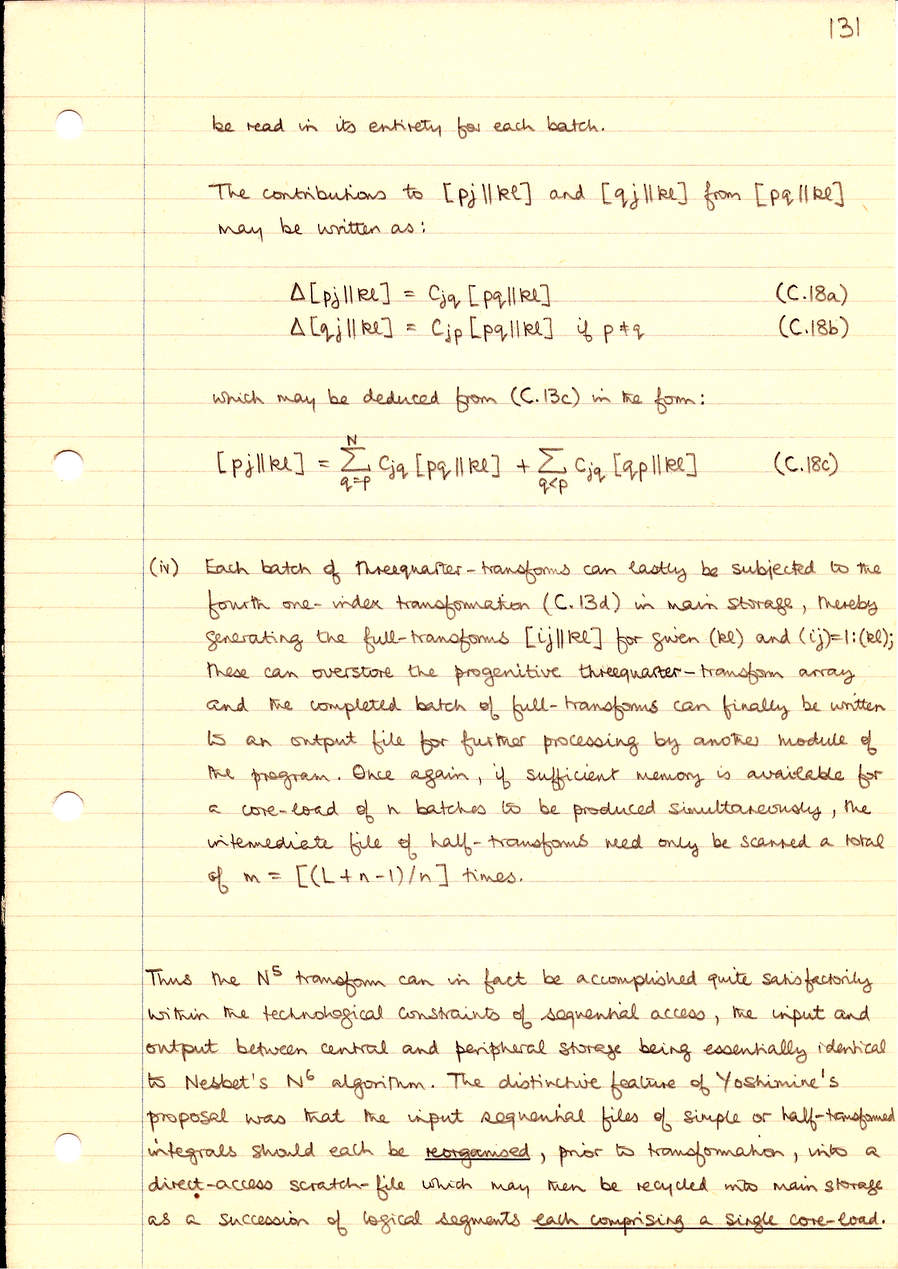 131
be read in its entirety for each batch.
The contributions to [pj||kl] and [qj||kl] from [pq||kl]
may be written as:
Δ[pj||kl] = Cjq [pq||kl] (C.18a)
Δ[qj||kl] = Cjp [pq||kl] if p ≠ q (C.18b)
which may be deduced from (C.13c) in the form:
[pj||kl] = ∑_{q=p}^{N} Cjq [pq||kl] + ∑_{q<p} Cjq [qp||kl] (C.18c)
(iv) Each batch of threequarter-transforms can lastly be subjected to the
fourth one-index transformation (C.13d) in main storage, thereby
generating the full-transforms [ij||kl] for given (kl) and (ij)=1:(kl);
these can overstore the progenitive threequarter-transform array
and the completed batch of full-transforms can finally be written
to an output file for further processing by another module of
the program. Once again, if sufficient memory is available for
a core-load of n batches to be produced simultaneously, the
intermediate file of half-transforms need only be scanned a total
of m = [(L+n-1)/n] times.
Thus the N⁵ transform can in fact be accomplished quite satisfactorily
within the technological constraints of sequential access, the input and
output between central and peripheral storage being essentially identical
to Nesbet's N⁶ algorithm. The distinctive feature of Yoshimine's
proposal was that the input sequential files of simple or half-transformed
integrals should each be reorganised, prior to transformation, into a
direct-access scratch-file which may then be recycled into main storage
as a succession of logical segments each comprising a single core-load.